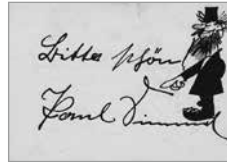 Bitte schön
Paul Simmel